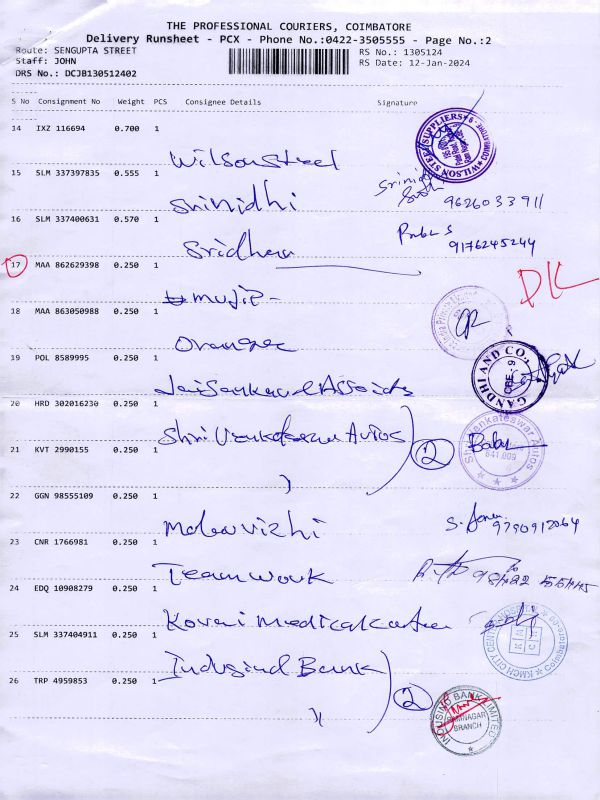 THE PROFESSIONAL COURIERS, COIMBATORE
Delivery Runsheet - PCX - Phone No.:0422-3505555 - Page No.:2
Route: SENGUPTA STREET
RS No.: 1305124
Staff: JOHN
RS Date: 12-Jan-2024
DRS No.: DCJB130512402
S No Consignment No Weight PCS Consignee Details Signature
14 IXZ 116694 0.700 1
Wilson Steel
WILSON STEEL SUPPLIERS
15 SLM 337397835 0.555 1
Srinidhi
9626033911
16 SLM 337400631 0.570 1
Sridhar
9176245244
17 MAA 862629398 0.250 1
DL
mujip
18 MAA 863050988 0.250 1
Orange
19 POL 8589995 0.250 1
GANDHI AND CO.
20 HRD 302016230 0.250 1
Shri Venkateswara Autos
2
Babu
21 KVT 2990155 0.250 1
22 GGN 98555109 0.250 1
Malarvizhi
9790912064
23 CNR 1766981 0.250 1
Team work
24 EDQ 10908279 0.250 1
Kovai medical
KMCH CITY CENTRE HOSPITAL
25 SLM 337404911 0.250 1
Indusind Bank
2
26 TRP 4959853 0.250 1
INDUSIND BANK LIMITED
RAMNAGAR
BRANCH